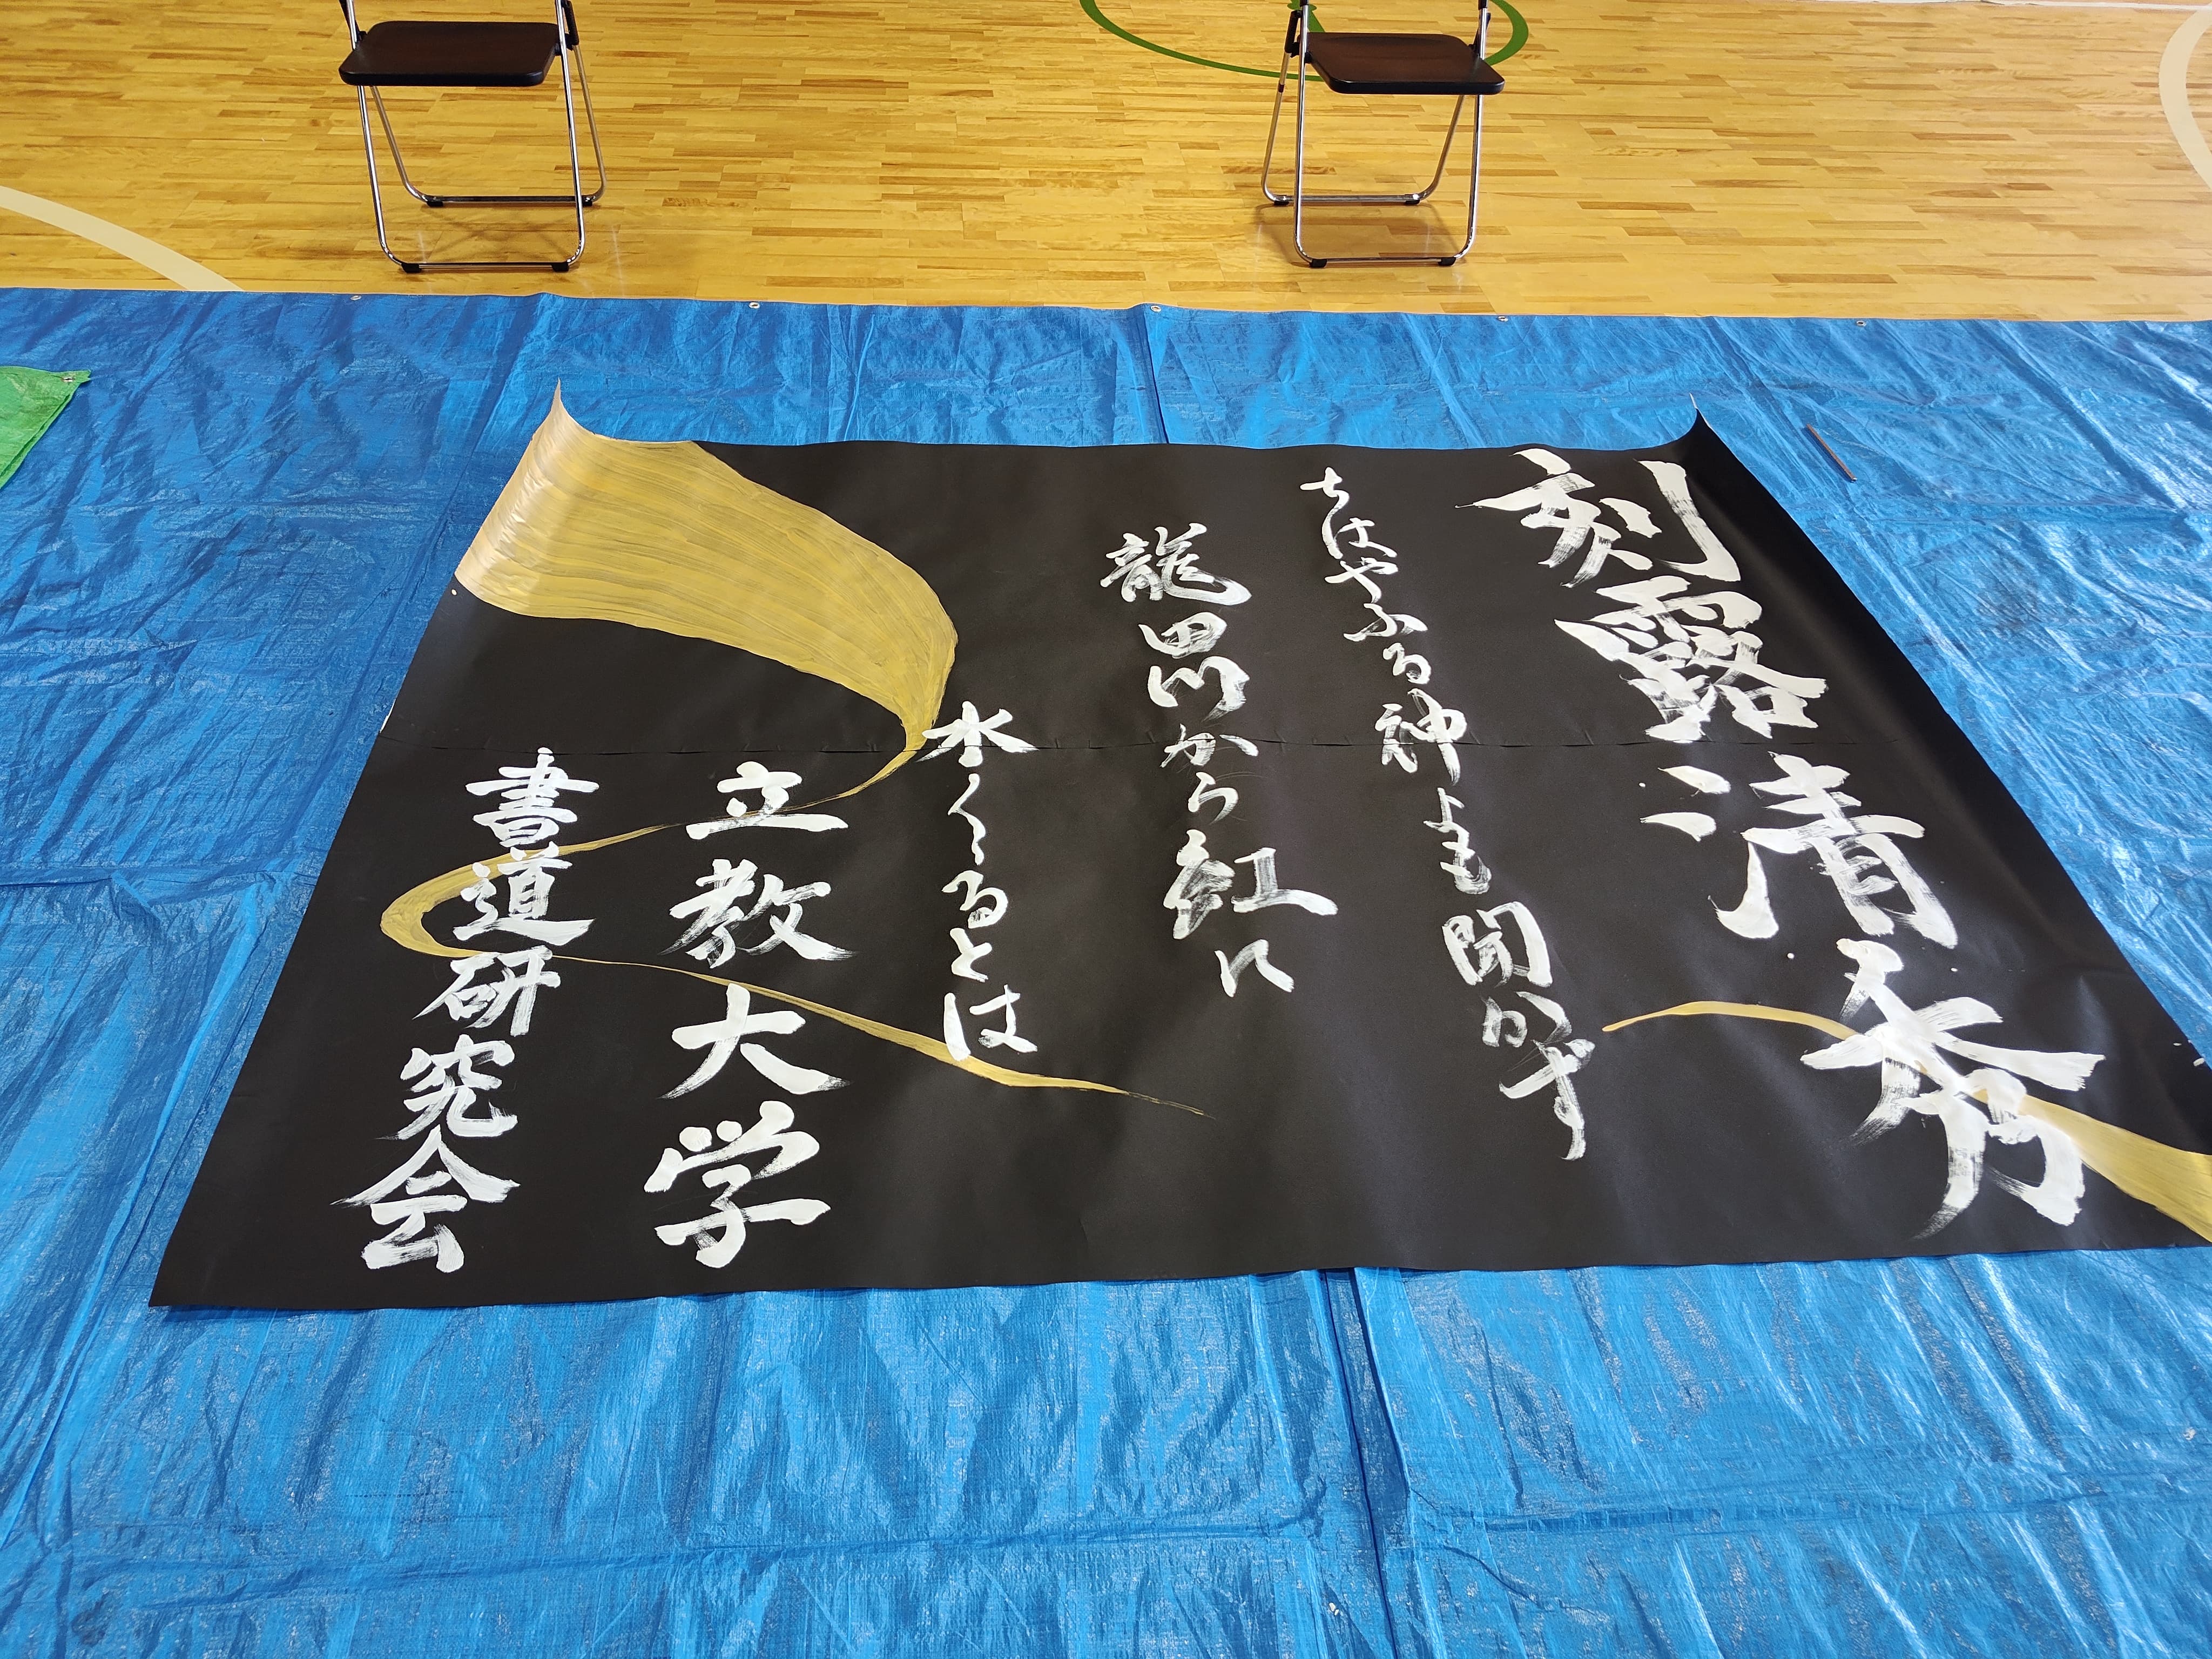 刻露清秀
ちはやふる神よも聞かず
龍田川から紅に
水くくるとは
立教大学
書道研究会